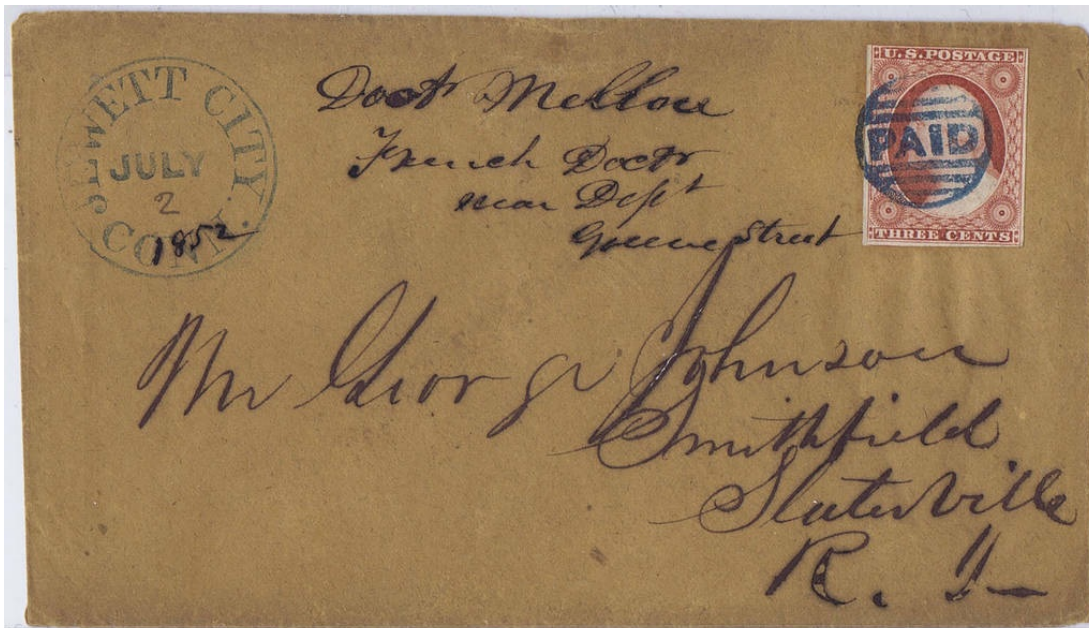 JEWETT CITY.
CONN.
JULY
2
1852
Doct Mellow
French Doctr
near Dept
Greene Street
U.S. POSTAGE
PAID
THREE CENTS
Mr George Johnson
Smithfield
Slaterville
R. I.